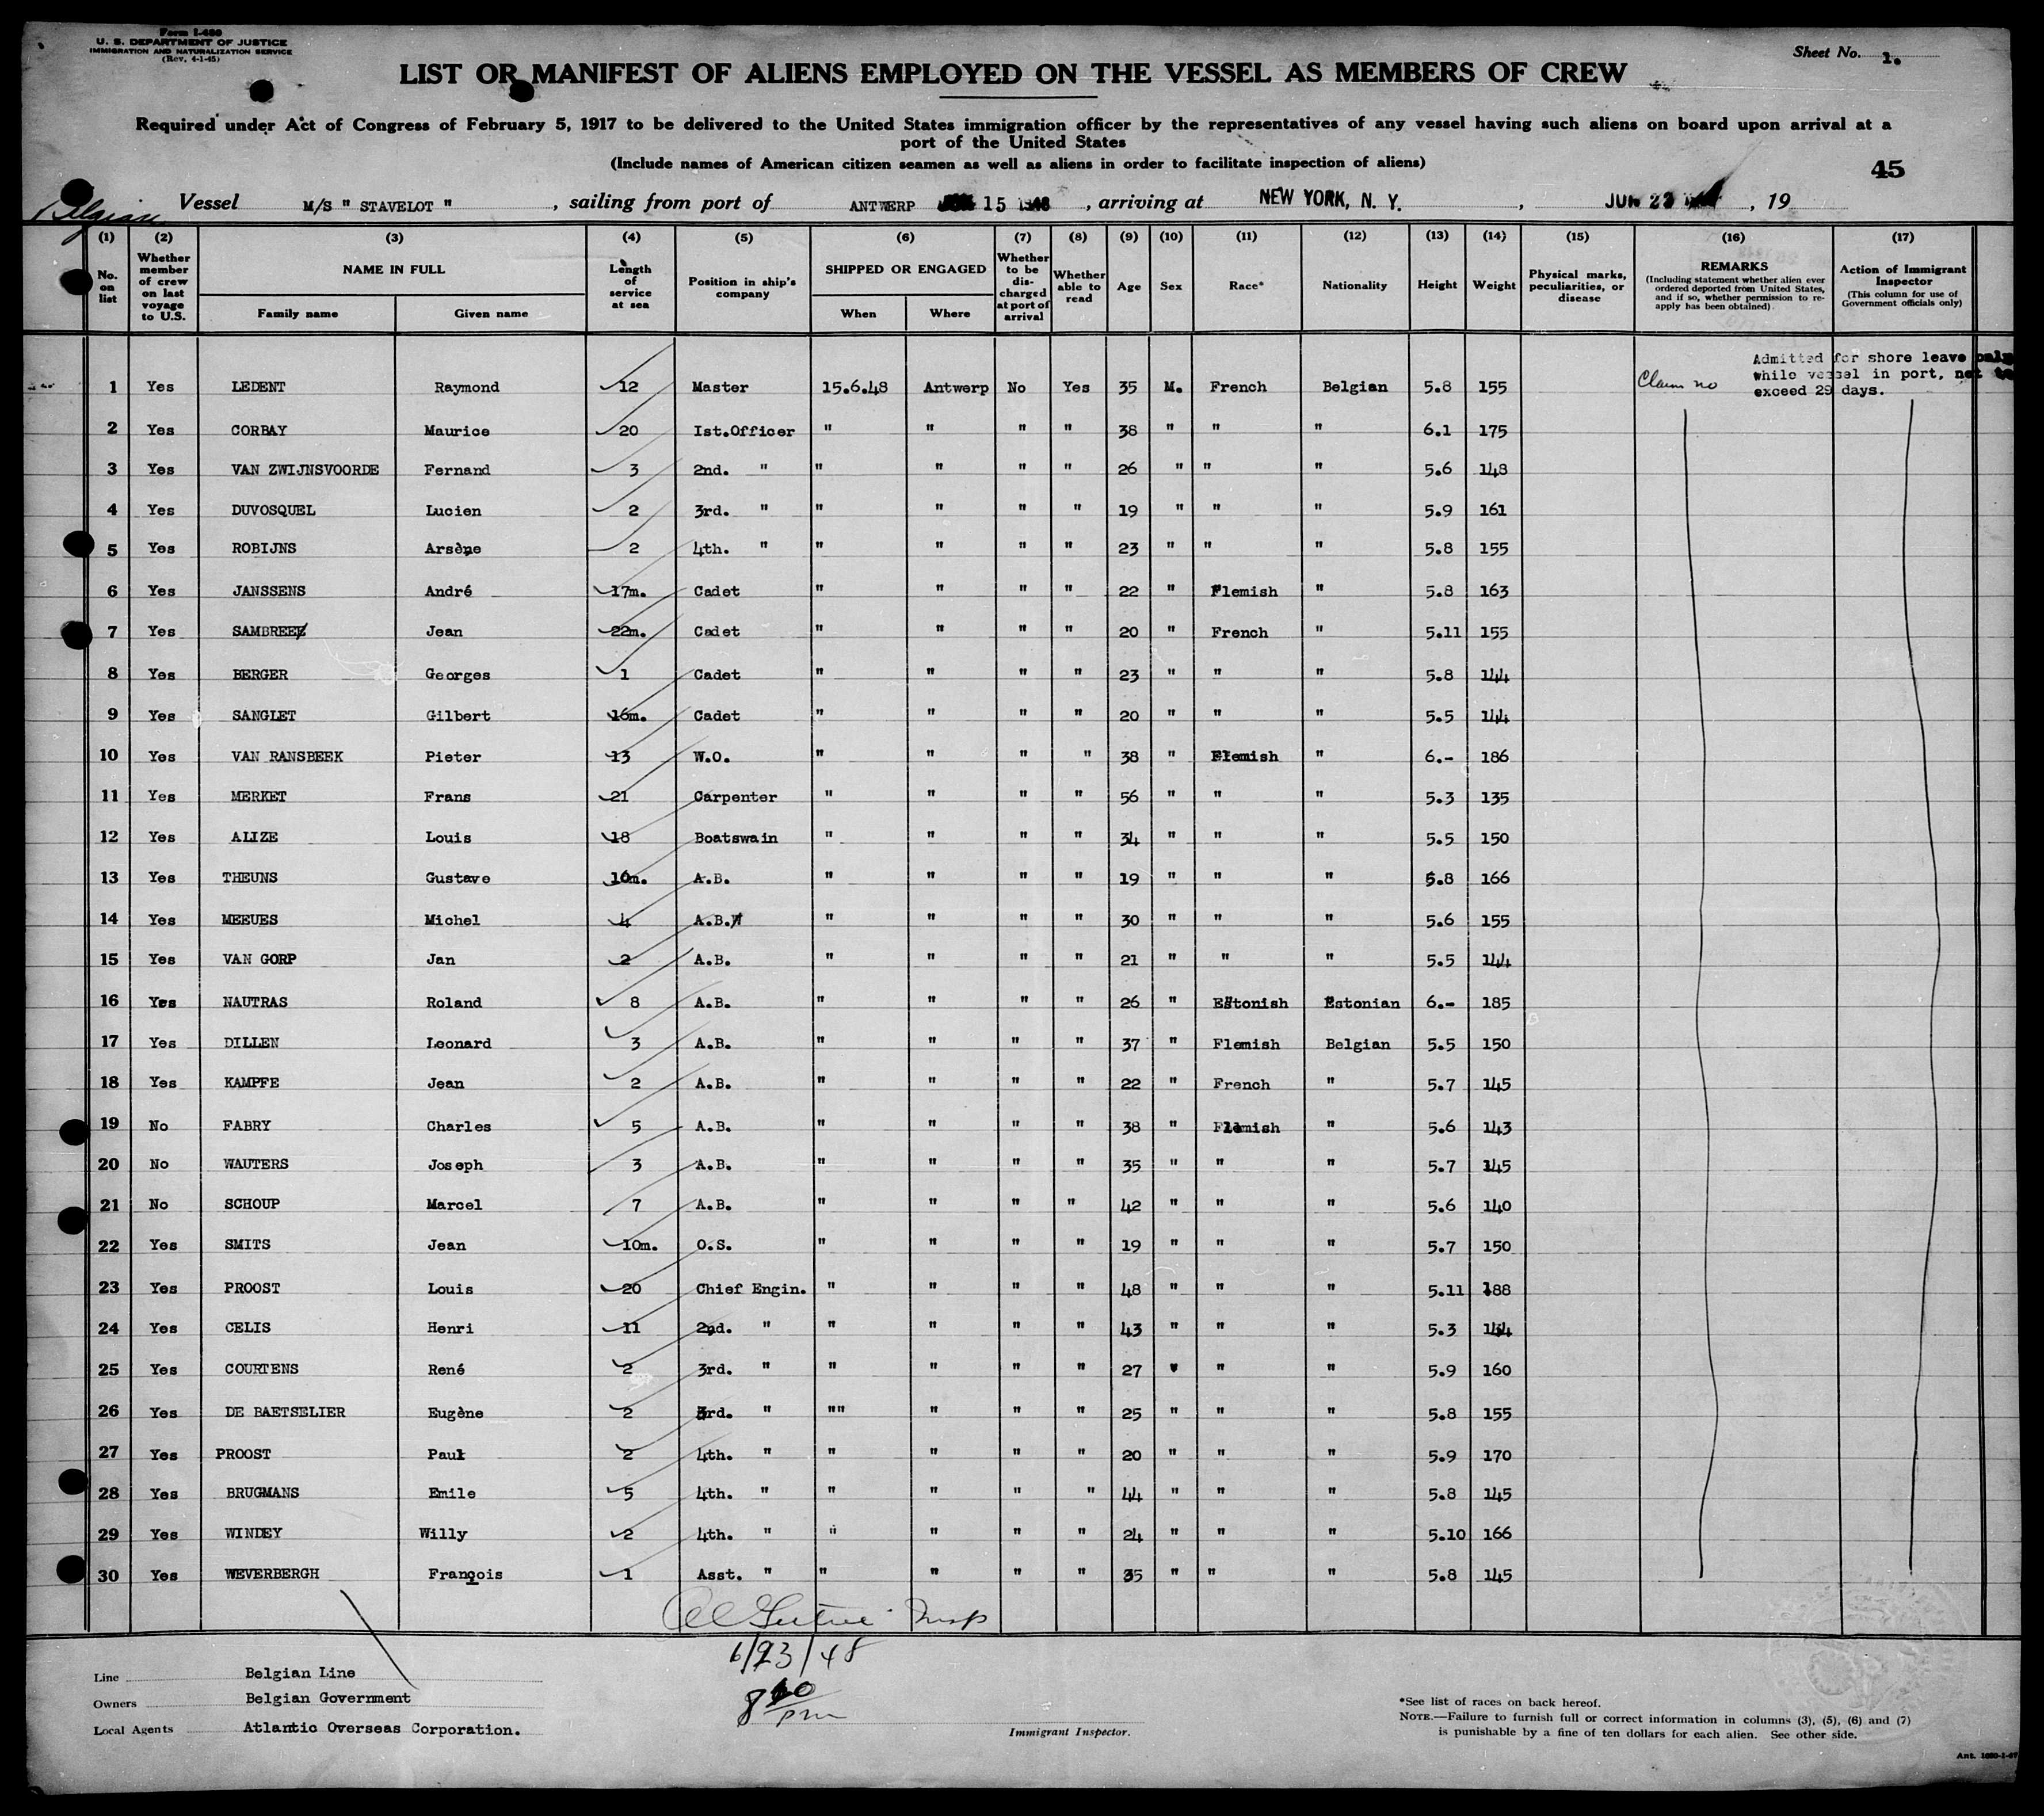 Form I-480
U. S. DEPARTMENT OF JUSTICE
IMMIGRATION AND NATURALIZATION SERVICE
(Rev. 4-1-45)
Sheet No. 1.
LIST OR MANIFEST OF ALIENS EMPLOYED ON THE VESSEL AS MEMBERS OF CREW
Required under Act of Congress of February 5, 1917 to be delivered to the United States immigration officer by the representatives of any vessel having such aliens on board upon arrival at a
port of the United States
(Include names of American citizen seamen as well as aliens in order to facilitate inspection of aliens)
45
Belgian Vessel M/S " STAVELOT " , sailing from port of ANTWERP 15 1948 , arriving at NEW YORK, N. Y. , JUN 23 , 19
(1) (2) (3) (4) (5) (6) (7) (8) (9) (10) (11) (12) (13) (14) (15) (16) (17)
No. on list
Whether member of crew on last voyage to U.S.
NAME IN FULL
Family name Given name
Length of service at sea
Position in ship's company
SHIPPED OR ENGAGED
When Where
Whether to be discharged at port of arrival
Whether able to read
Age Sex Race* Nationality Height Weight
Physical marks, peculiarities, or disease
REMARKS
(Including statement whether alien ever ordered deported from United States, and if so, whether permission to reapply has been obtained)
Action of Immigrant Inspector
(This column for use of Government officials only)
Admitted for shore leave only
while vessel in port, not to
exceed 29 days.
1 Yes LEDENT Raymond 12 Master 15.6.48 Antwerp No Yes 35 M. French Belgian 5.8 155 Claim no
2 Yes CORBAY Maurice 20 Ist.Officer " " " " 38 " " " 6.1 175
3 Yes VAN ZWIJNSVOORDE Fernand 3 2nd. " " " " " 26 " " " 5.6 148
4 Yes DUVOSQUEL Lucien 2 3rd. " " " " " 19 " " " 5.9 161
5 Yes ROBIJNS Arsène 2 4th. " " " " " 23 " " " 5.8 155
6 Yes JANSSENS André 17m. Cadet " " " " 22 " Flemish " 5.8 163
7 Yes SAMBREE Jean 22m. Cadet " " " " 20 " French " 5.11 155
8 Yes BERGER Georges 1 Cadet " " " " 23 " " " 5.8 144
9 Yes SANGLET Gilbert 16m. Cadet " " " " 20 " " " 5.5 144
10 Yes VAN RANSBEEK Pieter 13 W.O. " " " " 38 " Flemish " 6.- 186
11 Yes MERKET Frans 21 Carpenter " " " " 56 " " " 5.3 135
12 Yes ALIZE Louis 18 Boatswain " " " " 34 " " " 5.5 150
13 Yes THEUNS Gustave 10m. A.B. " " " " 19 " " " 5.8 166
14 Yes MEEUES Michel 4 A.B. " " " " 30 " " " 5.6 155
15 Yes VAN GORP Jan 2 A.B. " " " " 21 " " " 5.5 144
16 Yes NAUTRAS Roland 8 A.B. " " " " 26 " Estonish Estonian 6.- 185
17 Yes DILLEN Leonard 3 A.B. " " " " 37 " Flemish Belgian 5.5 150
18 Yes KAMPFE Jean 2 A.B. " " " " 22 " French " 5.7 145
19 No FABRY Charles 5 A.B. " " " " 38 " Flemish " 5.6 143
20 No WAUTERS Joseph 3 A.B. " " " " 35 " " " 5.7 145
21 No SCHOUP Marcel 7 A.B. " " " " 42 " " " 5.6 140
22 Yes SMITS Jean 10m. O.S. " " " " 19 " " " 5.7 150
23 Yes PROOST Louis 20 Chief Engin. " " " " 48 " " " 5.11 188
24 Yes CELIS Henri 11 2nd. " " " " " 43 " " " 5.3 144
25 Yes COURTENS René 2 3rd. " " " " " 27 " " " 5.9 160
26 Yes DE BAETSELIER Eugène 2 3rd. " "" " " " 25 " " " 5.8 155
27 Yes PROOST Paul 2 4th. " " " " " 20 " " " 5.9 170
28 Yes BRUGMANS Emile 5 4th. " " " " " 44 " " " 5.8 145
29 Yes WINDEY Willy 2 4th. " " " " " 24 " " " 5.10 166
30 Yes WEVERBERGH François 1 Asst. " " " " " 35 " " " 5.8 145
Insp
6/23/48
Line Belgian Line
Owners Belgian Government
Local Agents Atlantic Overseas Corporation.
8 10 pm
Immigrant Inspector.
*See list of races on back hereof.
NOTE.—Failure to furnish full or correct information in columns (3), (5), (6) and (7)
is punishable by a fine of ten dollars for each alien. See other side.